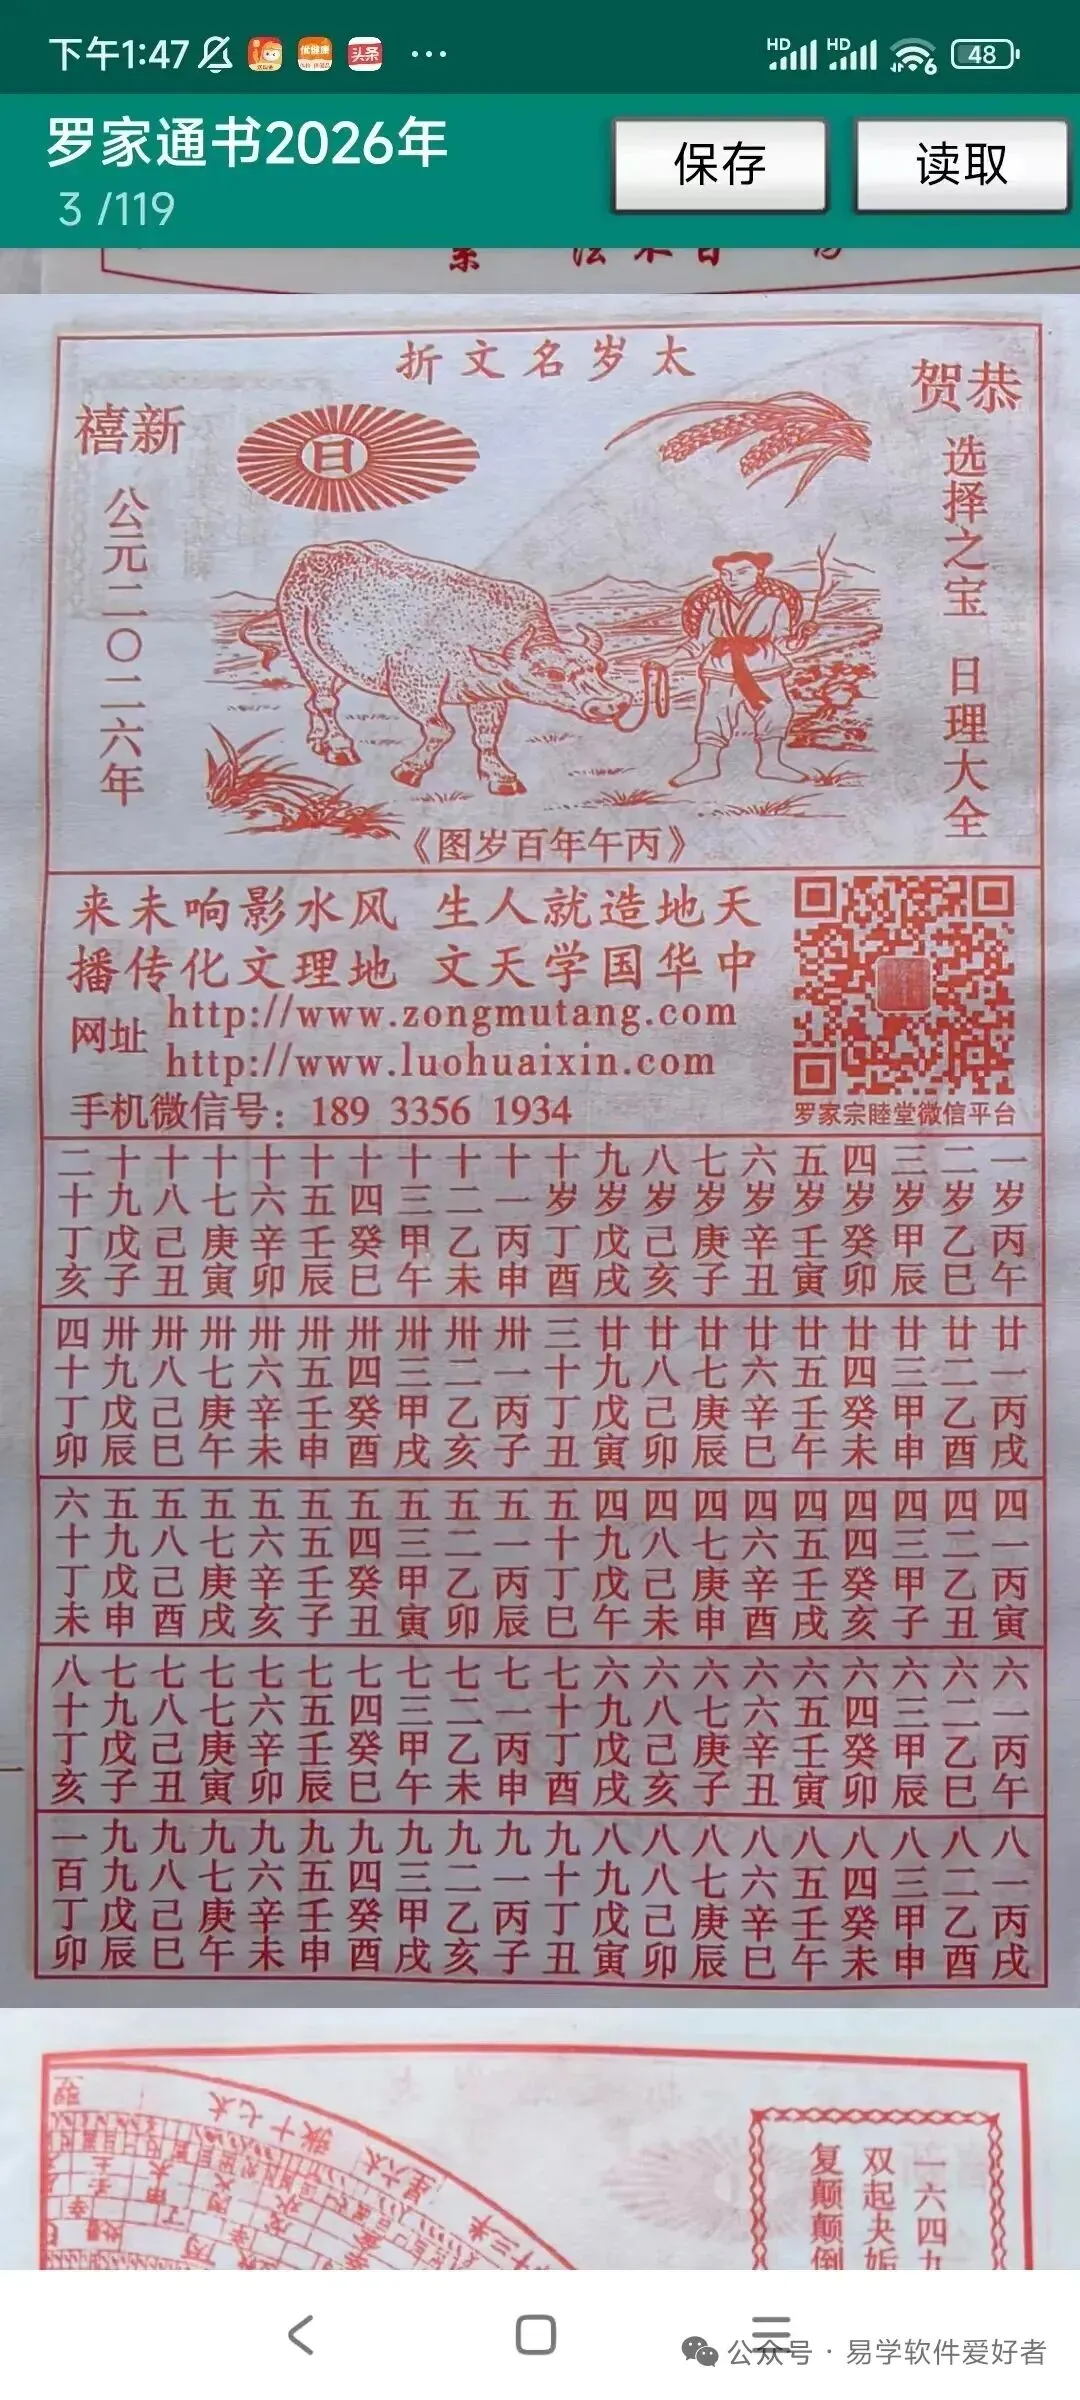 下午1:47
HD HD 6 48
头条
罗家通书2026年
3 /119
保存
读取
太岁名文折
恭贺
新禧
日
选择之宝 日理大全
公元二〇二六年
《丙午年百岁图》
天地造就人生 风水影响未来
中华国学天文 地理文化传播
网址
http://www.zongmutang.com
http://www.luohuaixin.com
手机微信号：189 3356 1934
罗家宗睦堂微信平台
一岁丙午
二岁乙巳
三岁甲辰
四岁癸卯
五岁壬寅
六岁辛丑
七岁庚子
八岁己亥
九岁戊戌
十岁丁酉
十一丙申
十二乙未
十三甲午
十四癸巳
十五壬辰
十六辛卯
十七庚寅
十八己丑
十九戊子
二十丁亥
廿一丙戌
廿二乙酉
廿三甲申
廿四癸未
廿五壬午
廿六辛巳
廿七庚辰
廿八己卯
廿九戊寅
三十丁丑
卅一丙子
卅二乙亥
卅三甲戌
卅四癸酉
卅五壬申
卅六辛未
卅七庚午
卅八己巳
卅九戊辰
四十丁卯
四一丙寅
四二乙丑
四三甲子
四四癸亥
四五壬戌
四六辛酉
四七庚申
四八己未
四九戊午
五十丁巳
五一丙辰
五二乙卯
五三甲寅
五四癸丑
五五壬子
五六辛亥
五七庚戌
五八己酉
五九戊申
六十丁未
六一丙午
六二乙巳
六三甲辰
六四癸卯
六五壬寅
六六辛丑
六七庚子
六八己亥
六九戊戌
七十丁酉
七一丙申
七二乙未
七三甲午
七四癸巳
七五壬辰
七六辛卯
七七庚寅
七八己丑
七九戊子
八十丁亥
八一丙戌
八二乙酉
八三甲申
八四癸未
八五壬午
八六辛巳
八七庚辰
八八己卯
八九戊寅
九十丁丑
九一丙子
九二乙亥
九三甲戌
九四癸酉
九五壬申
九六辛未
九七庚午
九八己巳
九九戊辰
一百丁卯
一六四九
双起夬姤
复颠颠倒
公众号 · 易学软件爱好者